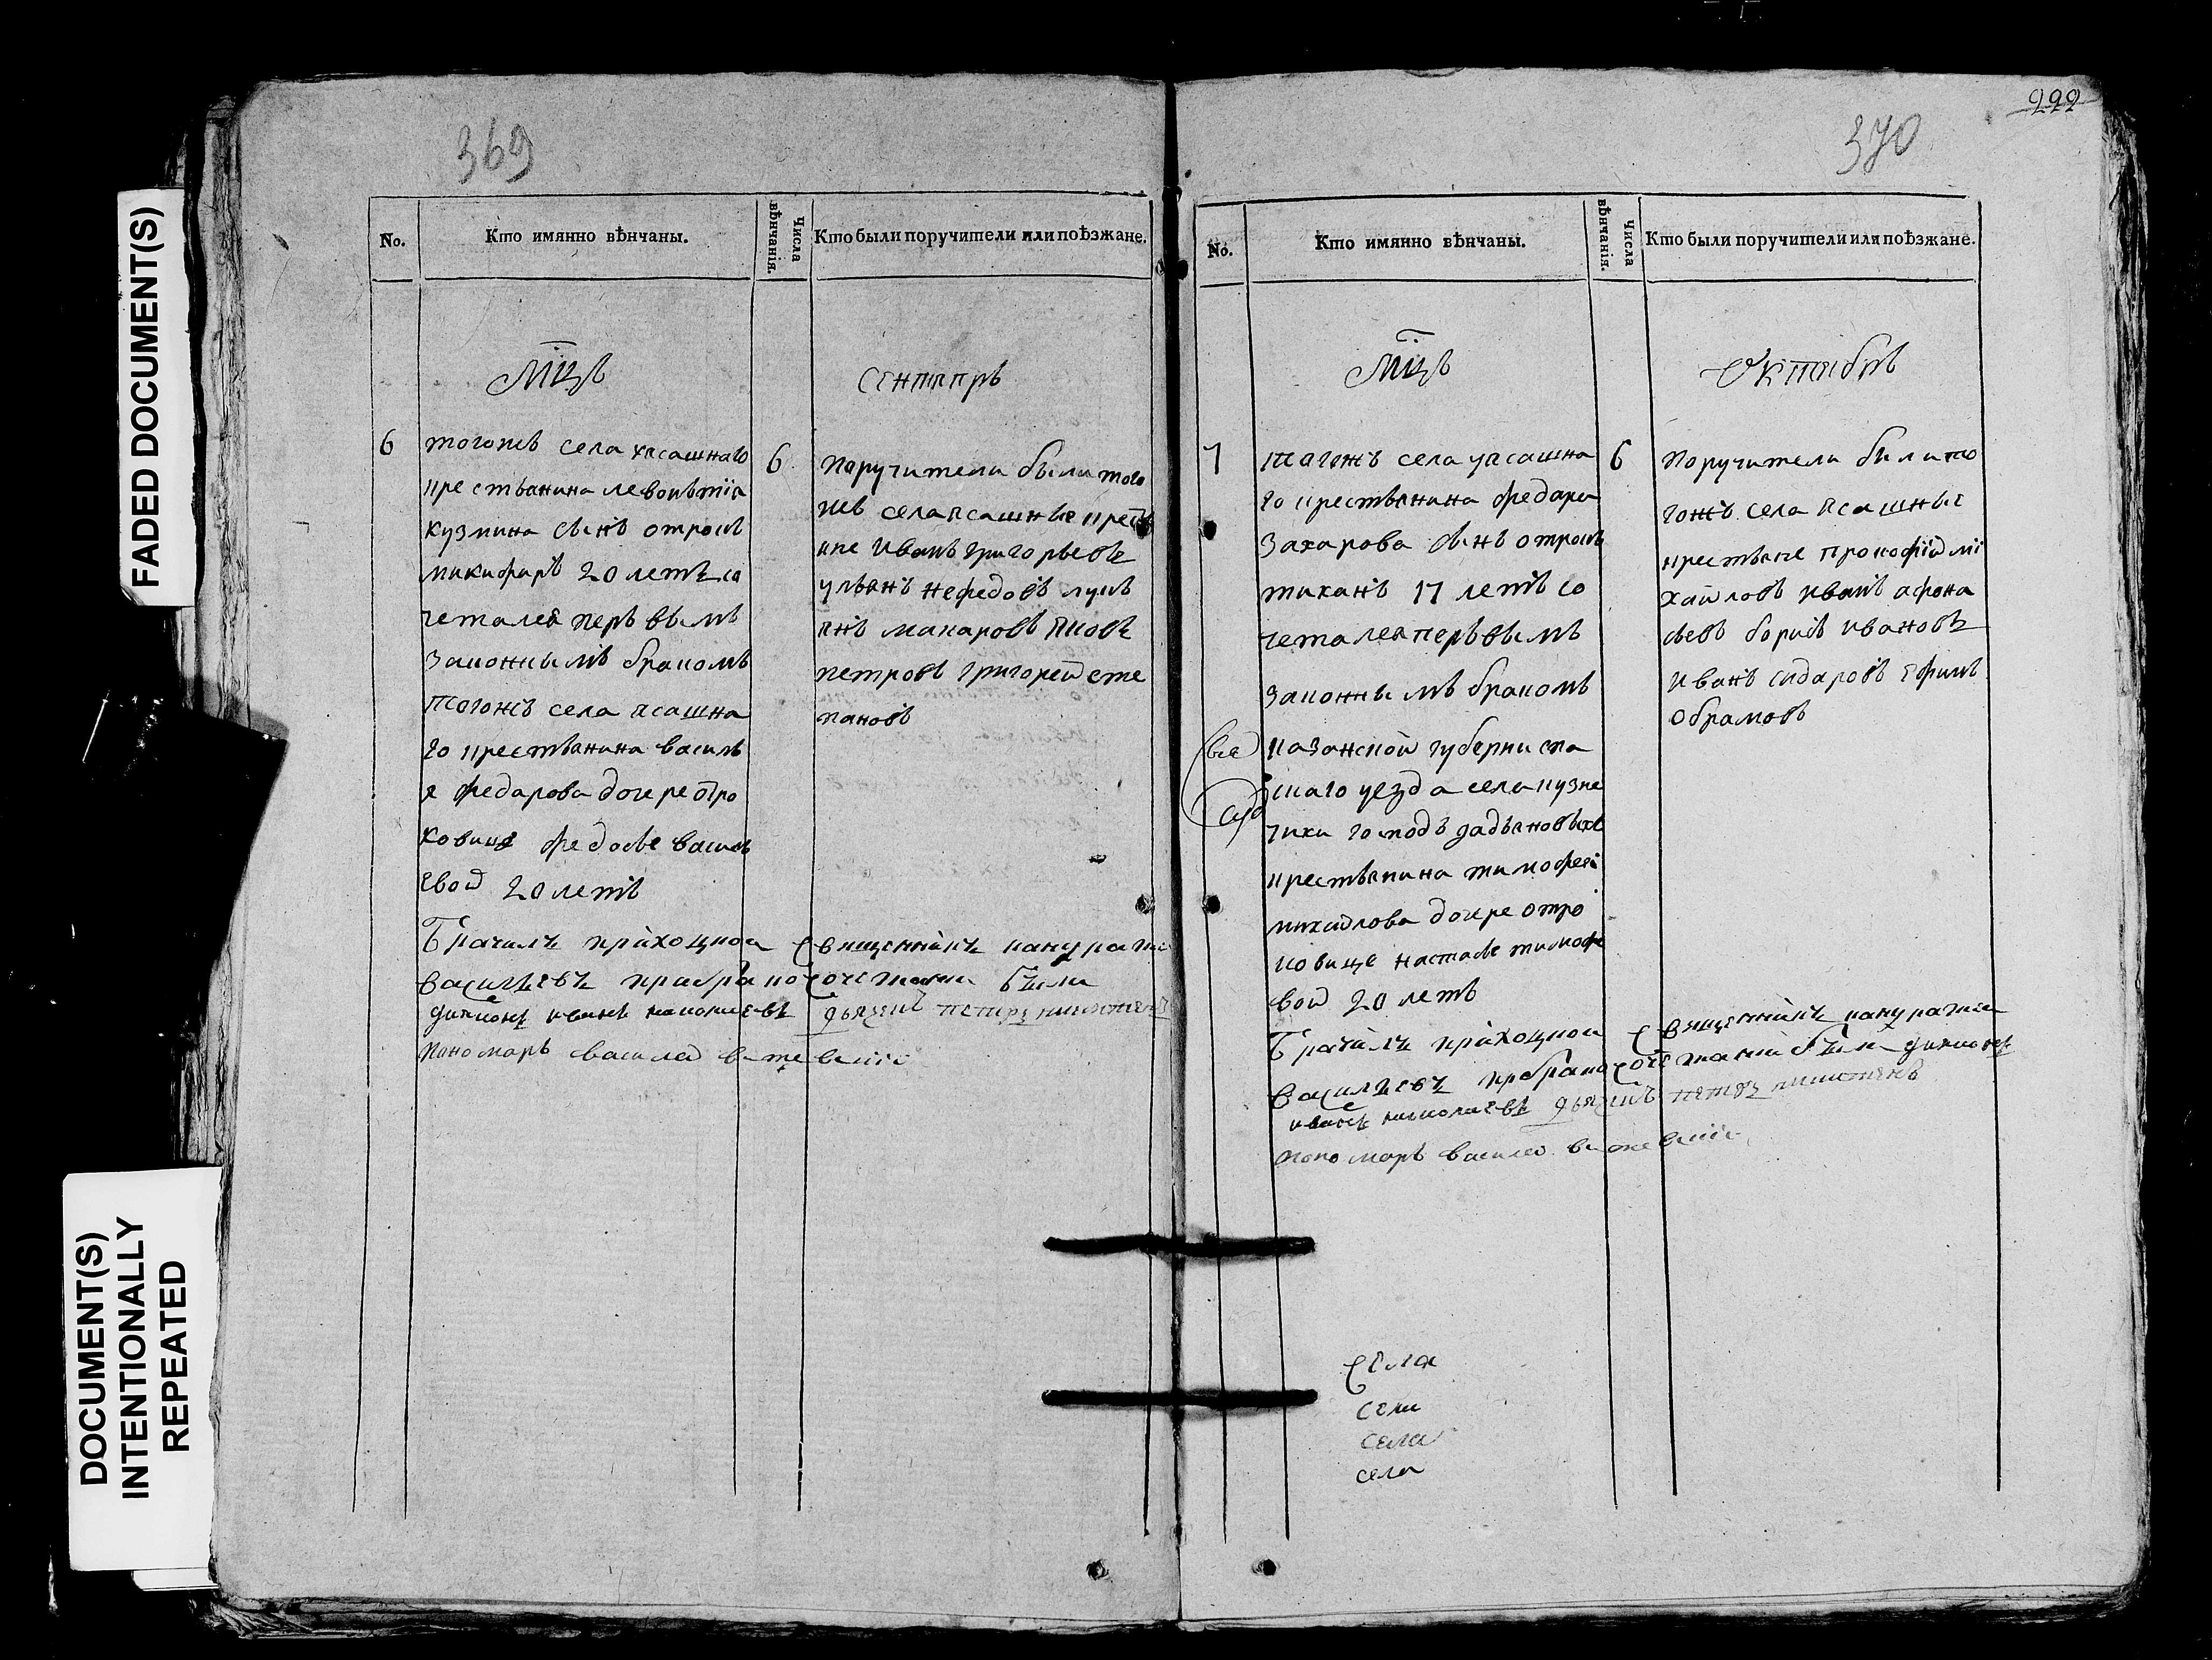 FADED DOCUMENT(S)
DOCUMENT(S)
INTENTIONALLY
REPEATED
369
No.
Кто имянно вѣнчаны.
Числа
вѣнчанія.
Кто были поручители или поѣзжане.
Мцъ
Сентяпръ
6
тогожъ села ясашнаго
крестьянина
кузмина сынъ отрокъ
никифаръ 20 летъ со
четался перъвымъ
законнымъ бракомъ
тогожъ села ясашна
го крестьянина василь
я федарова дочере отро
ковице федосье василь
евой 20 летъ
6
поручители были того
жъ села ясашные крестья
не иванъ григорьевъ
ульянъ нефедовъ лукь
янъ макаровъ яковъ
петровъ григорей сте
пановъ
Брачилъ приходцкои священникъ
васильевъ при бракосочетании были
диаконъ иванъ дьячекъ петръ
пономарь василей
222
370
No.
Кто имянно вѣнчаны.
Числа
вѣнчанія.
Кто были поручители или поѣзжане.
Мцъ
Октябръ
7
тагожъ села ясашна
го крестьянина федара
захарова сынъ отрокъ
тиханъ 17 летъ со
четался перъвымъ
законнымъ бракомъ
казанской губернии спа
скаго уезда села кузне
чихи господъ
крестьянина тимофея
михайлова дочере отро
ковице настасье тимофе
евой 20 летъ
6
поручители были то
гожъ села ясашные
крестьяне прокофiй ми
хайловъ иванъ афона
сьевъ борисъ ивановъ
иванъ сидаровъ ефимъ
обрамовъ
Брачилъ приходцкои священникъ
васильевъ при бракосочетании были диаконъ
иванъ дьячекъ петръ
пономарь василей
села
сели
села
села